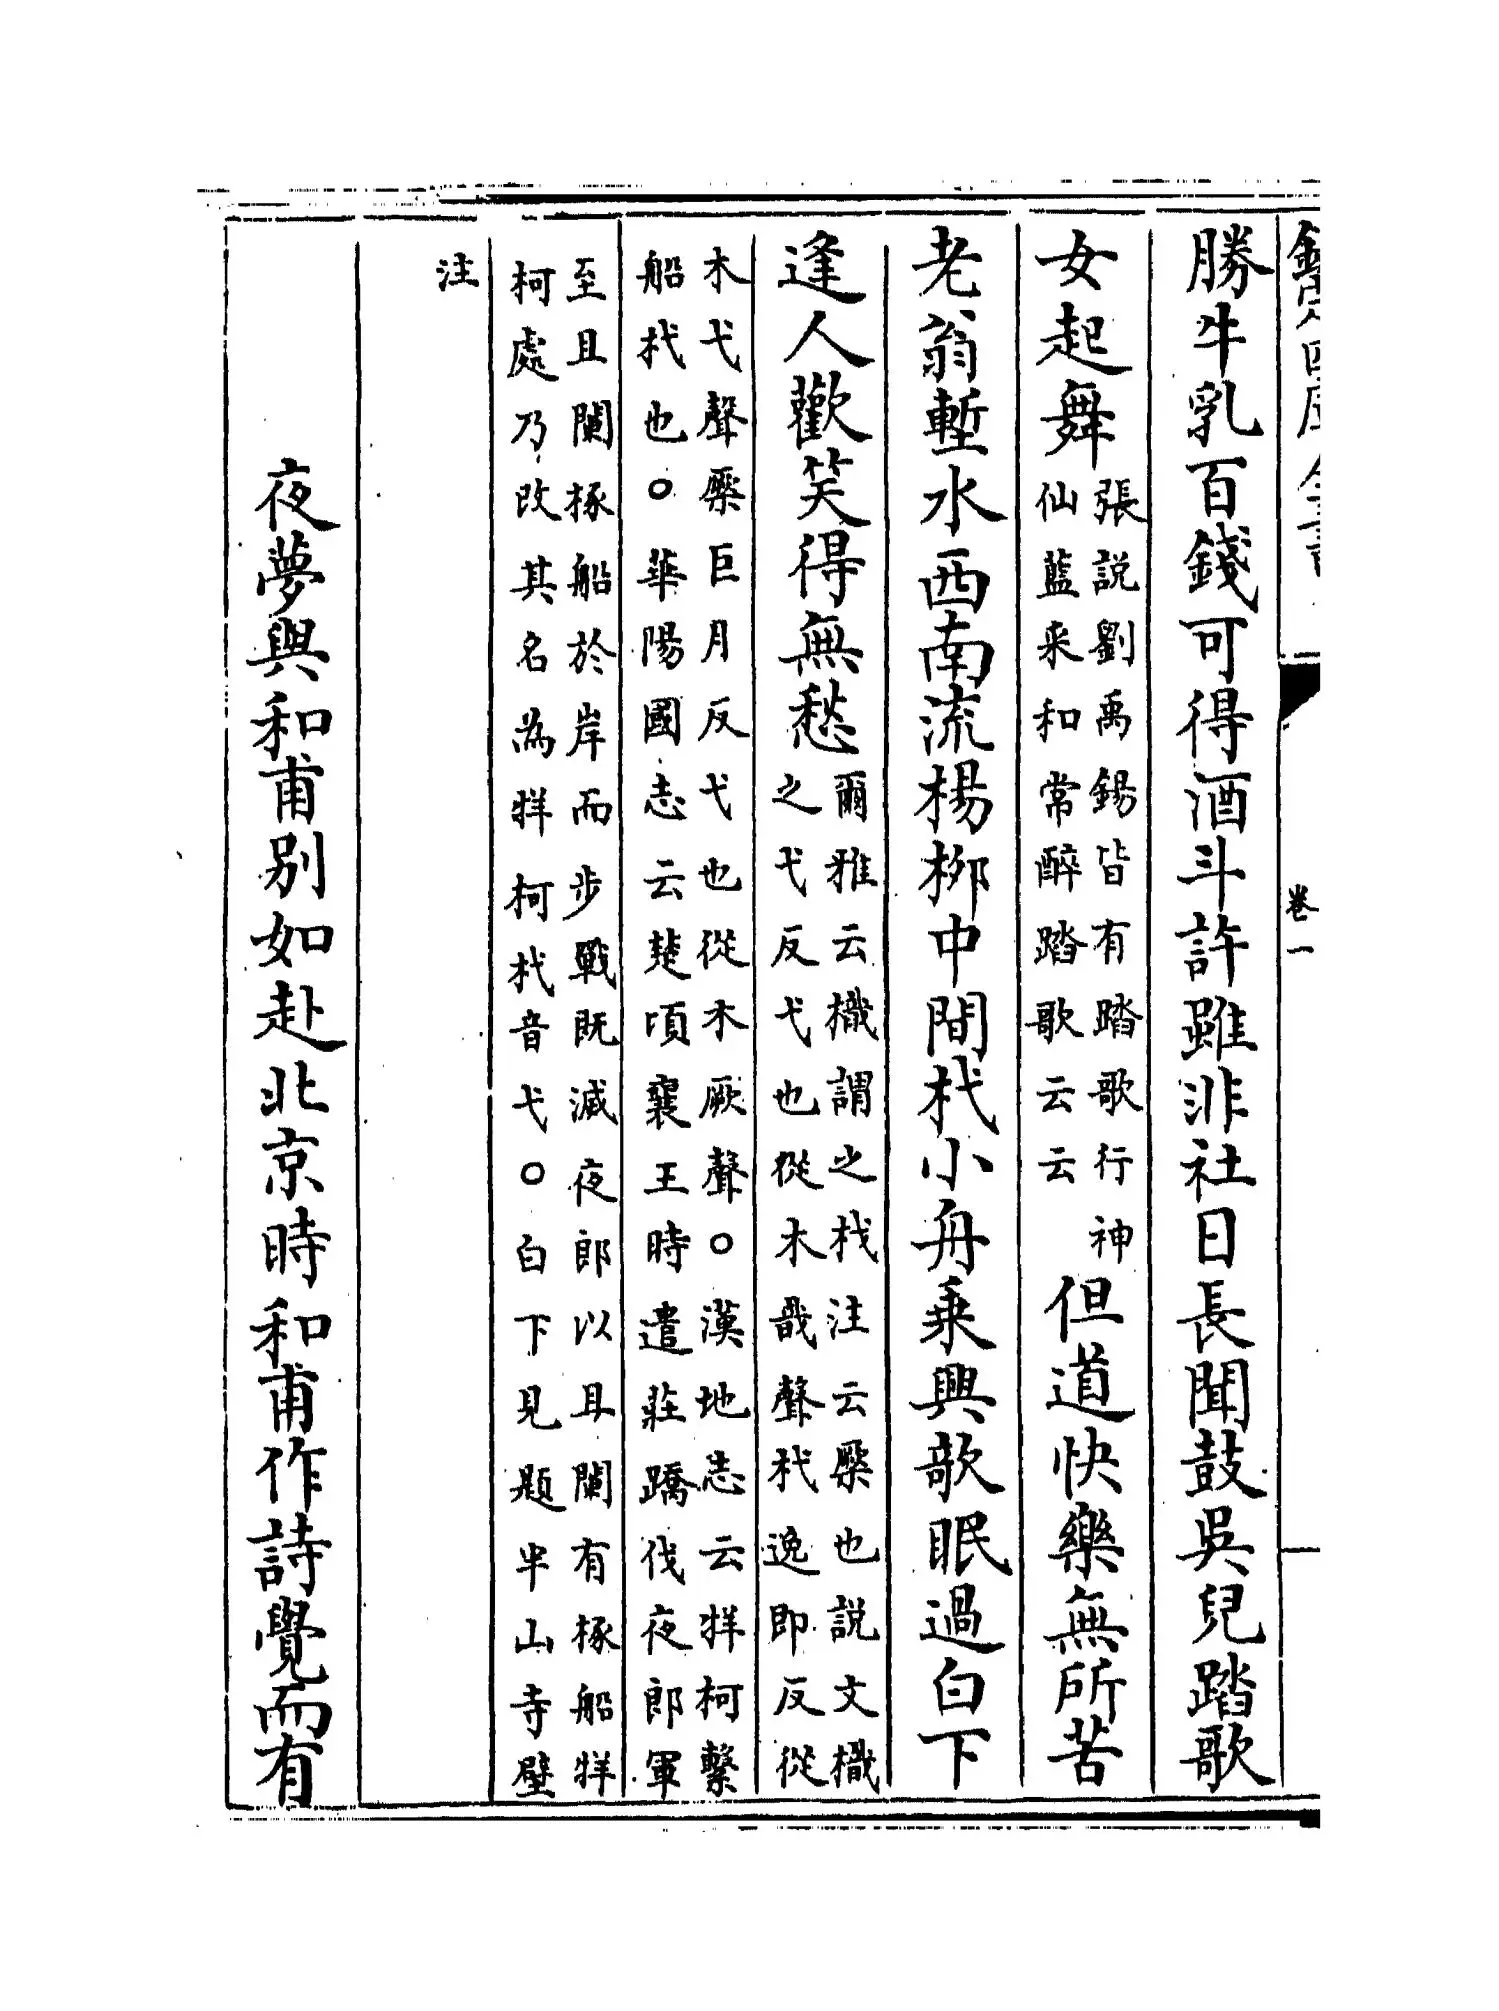 欽定四庫全書
卷一
勝牛乳百錢可得酒斗許雖非社日長聞鼓吳兒踏歌
女起舞
張說劉禹錫皆有踏歌行神
仙藍来和常醉踏歌云云
但道快樂無所苦
老翁塹水西南流楊柳中間杙小舟乗興欹眠過白下
逢人歡笑得無愁
爾雅云樴謂之杙注云橜也說文樴
之弋反弋也從木戠聲杙逸即反從
木弋聲橜巨月反弋也從木厥聲○漢地志云牂柯繫
船杙也○華陽國志云楚頃襄王時遣莊蹻伐夜郎軍
至且闌椓船於岸而步戰既滅夜郎以且闌有椓船牂
柯處乃改其名為牂柯杙音弋○白下見題半山寺壁
注
夜夢與和甫别如赴北京時和甫作詩覺而有